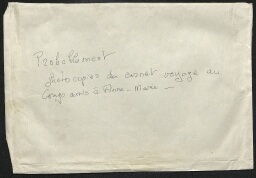 Probablement
photocopies du carnet voyage au
Congo à Anne-Marie